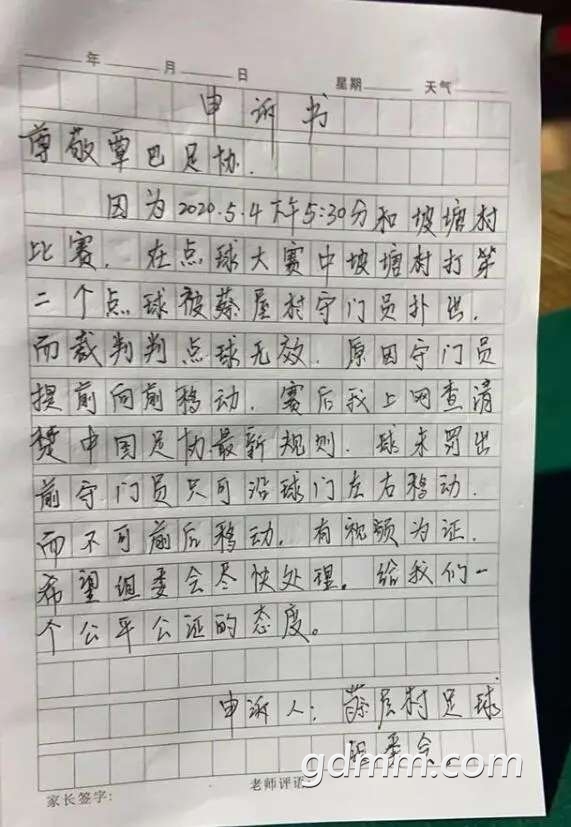 年 月 日 星期 天气
申诉书
尊敬覃巴足协.
因为2020.5.4下午5:30分和坡塘村
比赛. 在点球大赛中坡塘村打第
二个点球被蔡屋村守门员扑出.
而裁判判点球无效. 原因守门员
提前向前移动. 赛后我上网查清
楚中国足协最新规则. 球未罚出
前守门员只可沿球门左右移动.
而不可前后移动. 有视频为证.
希望组委会尽快处理. 给我们一
个公平公证的态度。
申诉人: 蔡屋村足球
委会.
gdmm.com
家长签字: 老师评语